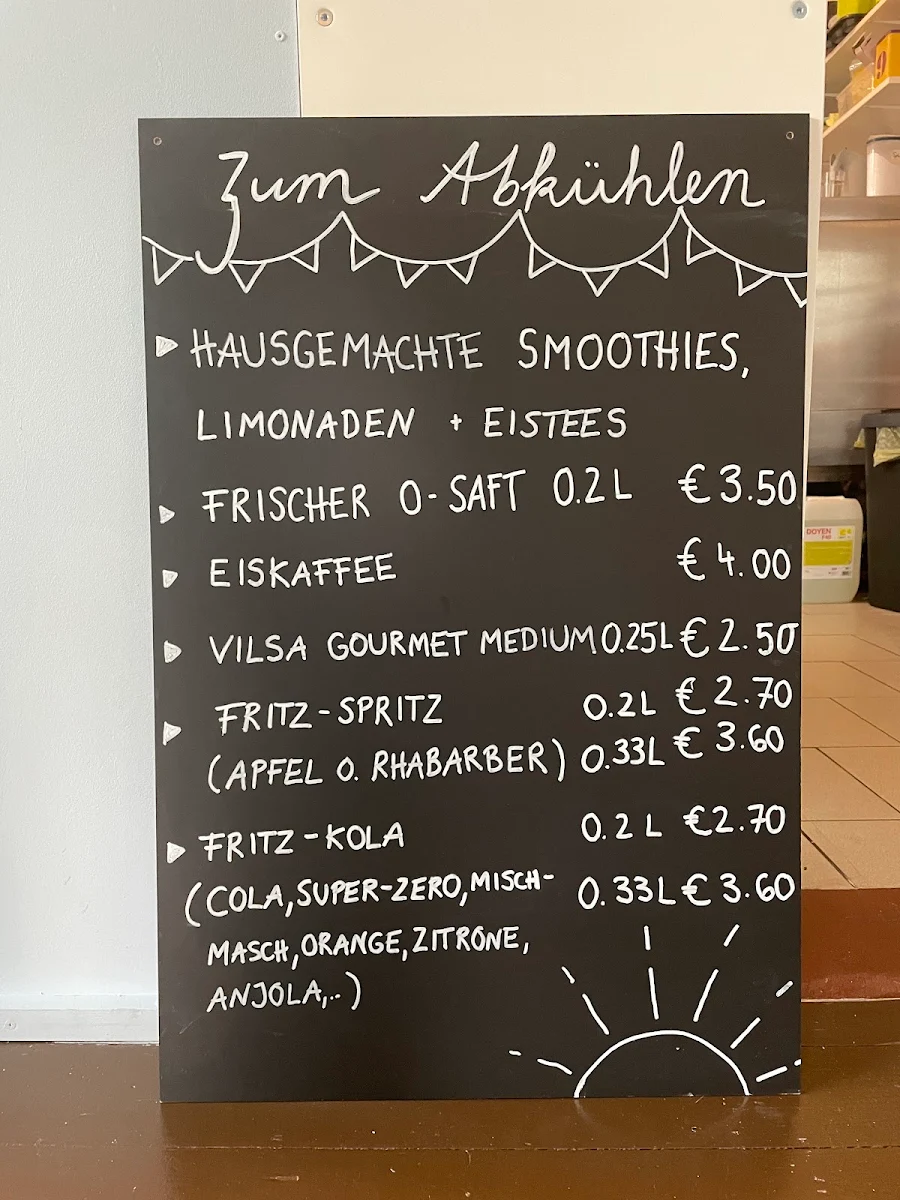 Zum Abkühlen
HAUSGEMACHTE SMOOTHIES,
LIMONADEN + EISTEES
FRISCHER O-SAFT 0.2L € 3.50
EISKAFFEE € 4.00
VILSA GOURMET MEDIUM 0.25L € 2.50
FRITZ-SPRITZ 0.2L € 2.70
(APFEL O. RHABARBER) 0.33L € 3.60
FRITZ-KOLA 0.2L € 2.70
(COLA, SUPER-ZERO, MISCH- 0.33L € 3.60
MASCH, ORANGE, ZITRONE,
ANJOLA,..)